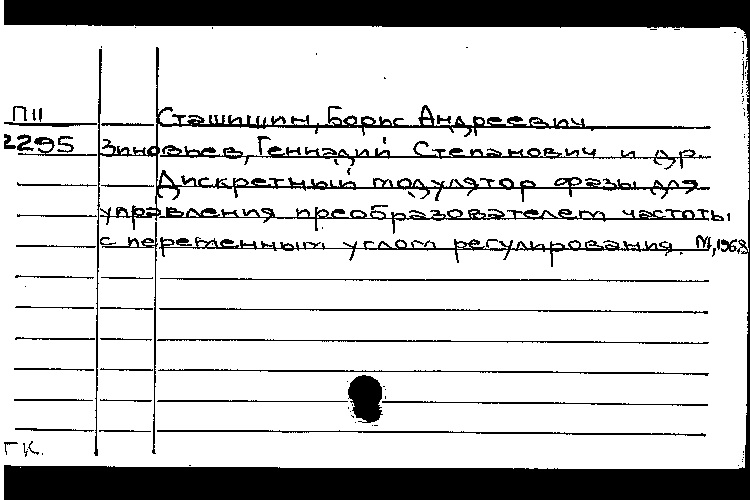 П11
Сташишин, Борис Андреевич.
2295
Зиновьев, Геннадий Степанович и др.
Дискретный модулятор фазы для
управления преобразователем частоты
с переменным углом регулирования. М, 1968
ГК.